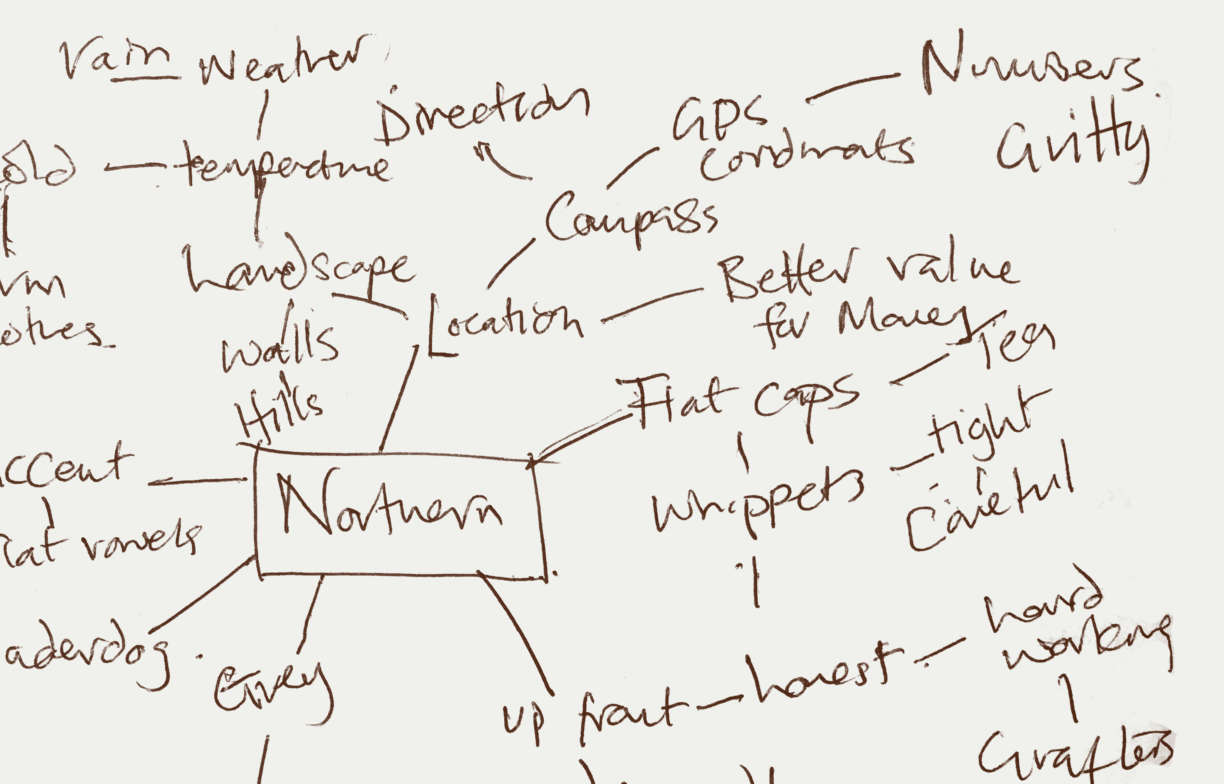 rain weather
Direction
GPS
cordinats
Numbers.
Gritty
old
temperature
Compass
Landscape
Location
Better value
for Money
Tea
Walls
Hills
Flat caps
tight
Careful
ccent
Northern
Whippets
vowels
Grey
up front
honest
hard
working
Grafters